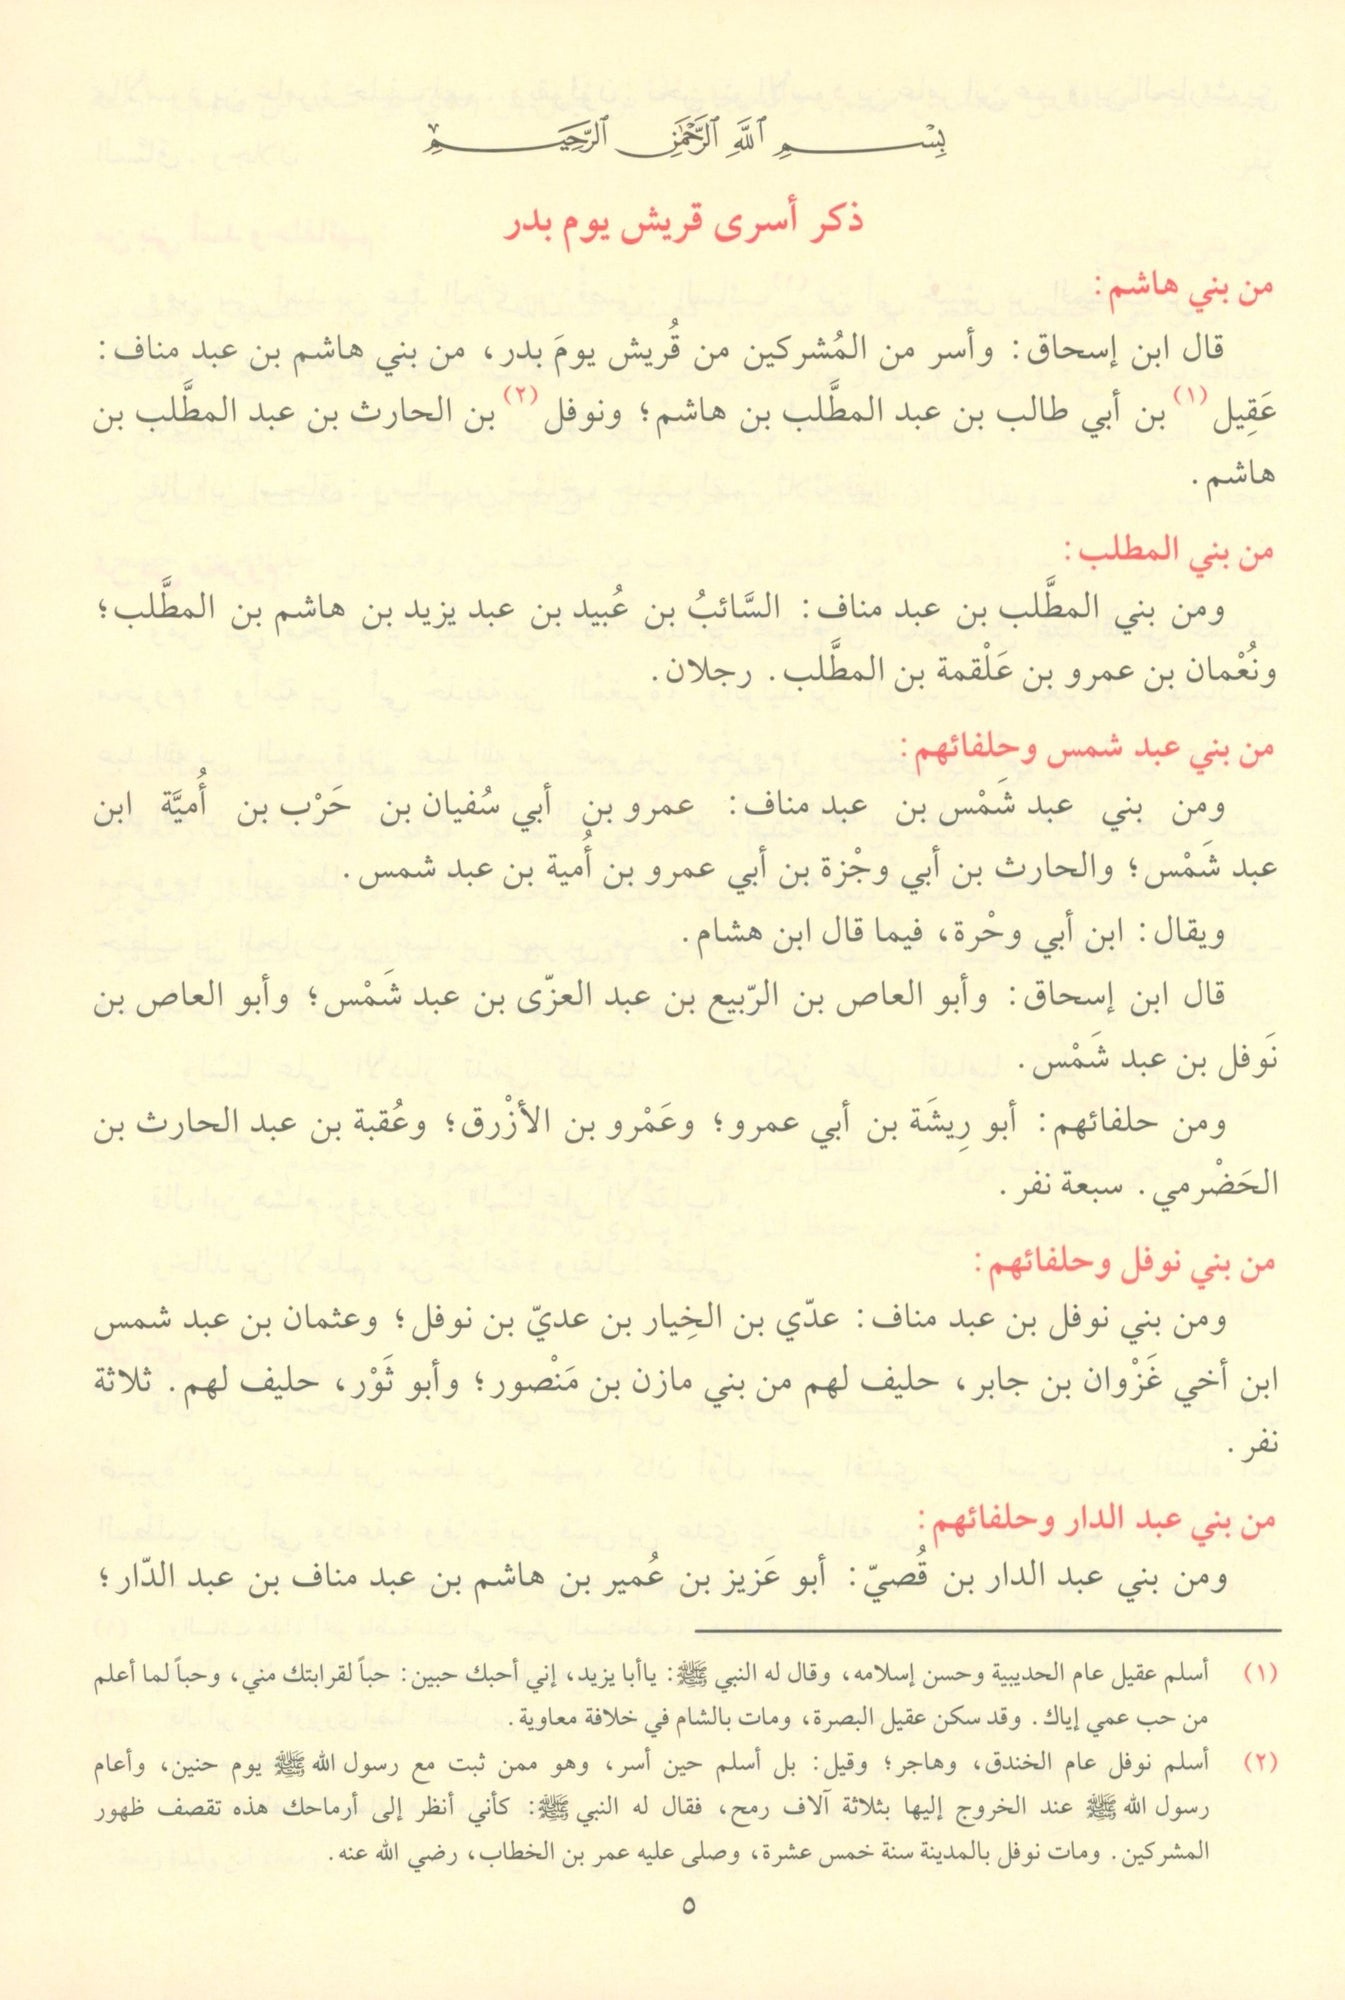 بِسْمِ ٱللَّهِ ٱلرَّحْمَٰنِ ٱلرَّحِيمِ
ذكر أسرى قريش يوم بدر
من بني هاشم:
قال ابن إسحاق: وأسر من المُشركين من قُريش يومَ بدر، من بني هاشم بن عبد مناف:
عَقِيل(١) بن أبي طالب بن عبد المطَّلب بن هاشم؛ ونوفل(٢) بن الحارث بن عبد المطَّلب بن
هاشم.
من بني المطلب:
ومن بني المطَّلب بن عبد مناف: السَّائبُ بن عُبيد بن عبد يزيد بن هاشم بن المطَّلب؛
ونُعْمان بن عمرو بن عَلْقمة بن المطَّلب. رجلان.
من بني عبد شمس وحلفائهم:
ومن بني عبد شَمْس بن عبد مناف: عمرو بن أبي سُفيان بن حَرْب بن أُميَّة ابن
عبد شَمْس؛ والحارث بن أبي وجْزة بن أبي عمرو بن أُمية بن عبد شمس.
ويقال: ابن أبي وحْرة، فيما قال ابن هشام.
قال ابن إسحاق: وأبو العاص بن الرّبيع بن عبد العزّى بن عبد شَمْس؛ وأبو العاص بن
نَوفل بن عبد شَمْس.
ومن حلفائهم: أبو رِيشَة بن أبي عمرو؛ وعَمْرو بن الأزْرق؛ وعُقبة بن عبد الحارث بن
الحَضْرمي. سبعة نفر.
من بني نوفل وحلفائهم:
ومن بني نوفل بن عبد مناف: عدّي بن الخِيار بن عديّ بن نوفل؛ وعثمان بن عبد شمس
ابن أخي غَزْوان بن جابر، حليف لهم من بني مازن بن مَنْصور؛ وأبو ثَوْر، حليف لهم. ثلاثة
نفر.
من بني عبد الدار وحلفائهم:
ومن بني عبد الدار بن قُصيّ: أبو عَزيز بن عُمير بن هاشم بن عبد مناف بن عبد الدّار؛
(١) أسلم عقيل عام الحديبية وحسن إسلامه، وقال له النبي ﷺ: ياأبا يزيد، إني أحبك حبين: حباً لقرابتك مني، وحباً لما أعلم
من حب عمي إياك. وقد سكن عقيل البصرة، ومات بالشام في خلافة معاوية.
(٢) أسلم نوفل عام الخندق، وهاجر؛ وقيل: بل أسلم حين أسر، وهو ممن ثبت مع رسول الله ﷺ يوم حنين، وأعام
رسول الله ﷺ عند الخروج إليها بثلاثة آلاف رمح، فقال له النبي ﷺ: كأني أنظر إلى أرماحك هذه تقصف ظهور
المشركين. ومات نوفل بالمدينة سنة خمس عشرة، وصلى عليه عمر بن الخطاب، رضي الله عنه.
٥